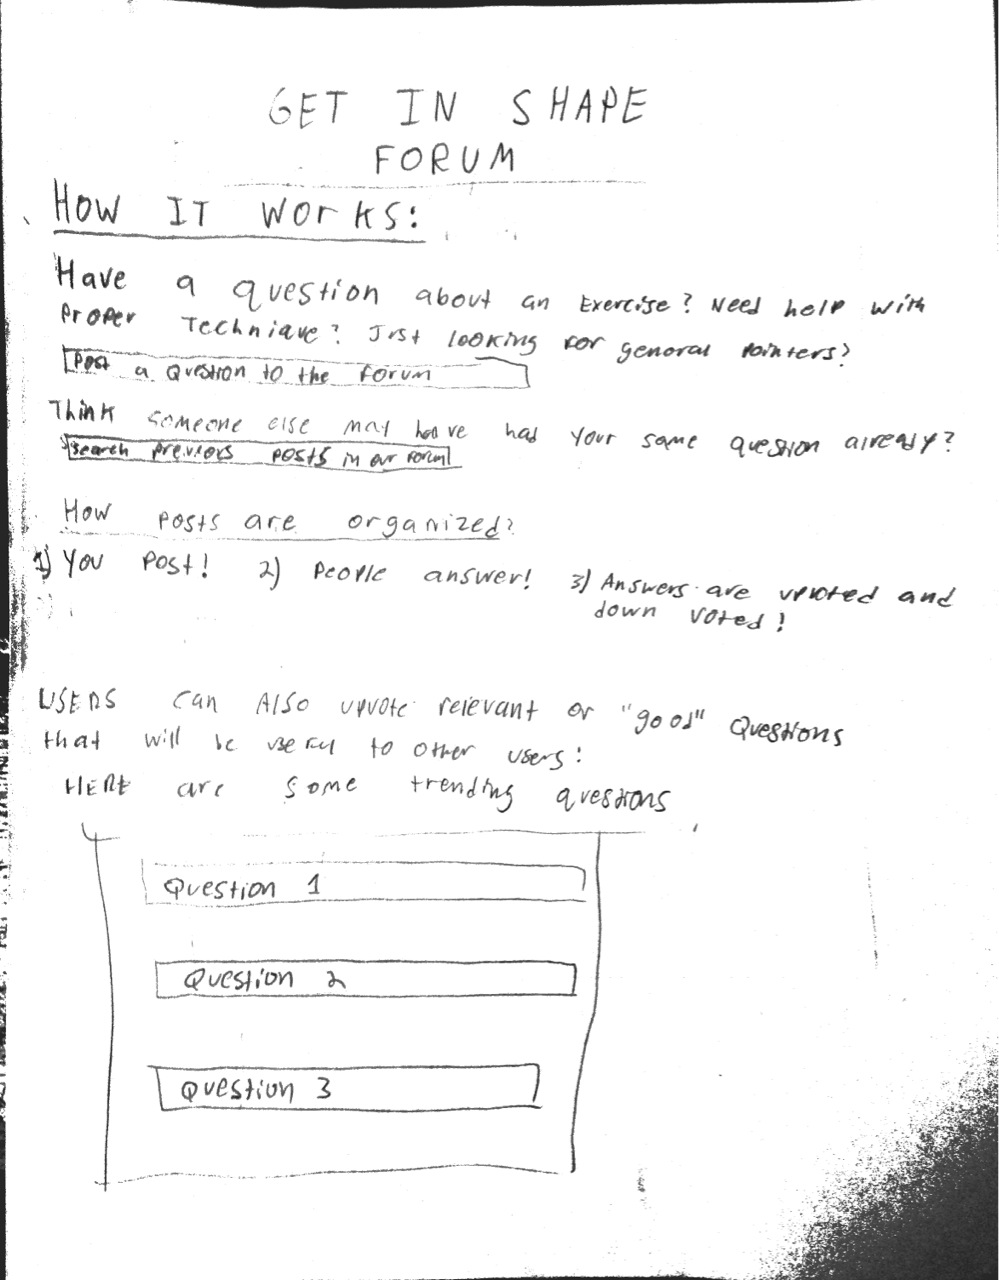 GET IN SHAPE
FORUM
HOW IT WORKS:
Have a question about an Exercise? Need help with
Proper Technique? Just looking for general pointers?
Post a Question to the forum
Think someone else may have had your same question already?
Search previous posts in our forum
How posts are organized?
1) You Post! 2) People answer! 3) Answers are upvoted and
down voted!
USERS can Also upvote relevant or "good" Questions
that will be useful to other users:
HERE are some trending questions
Question 1
Question 2
Question 3